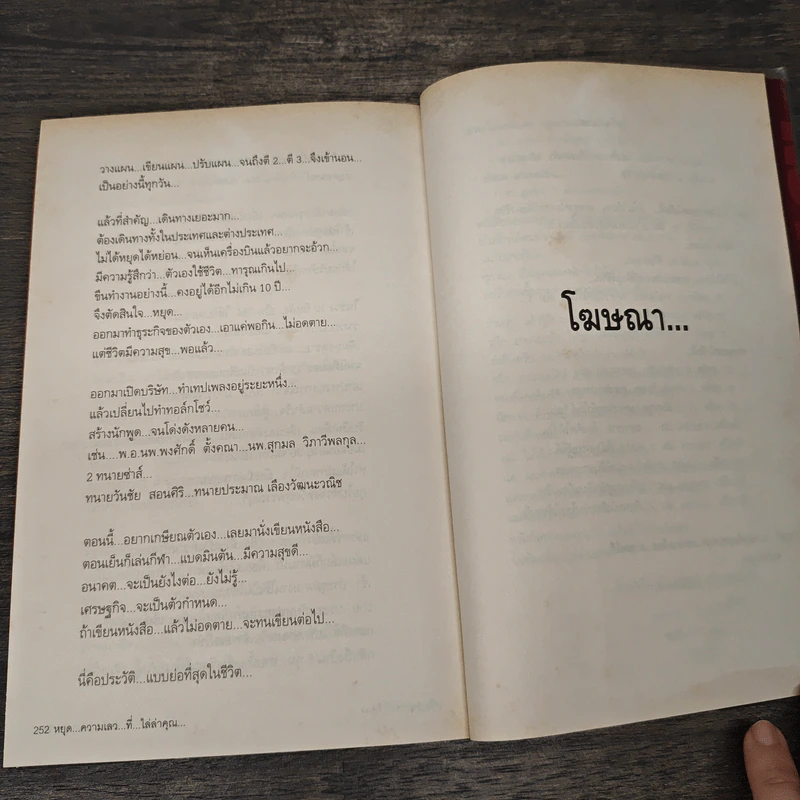 วางแผน...เขียนแผน...ปรับแผน...จนถึงตี 2...ตี 3...จึงเข้านอน...
เป็นอย่างนี้ทุกวัน...
แล้วที่สำคัญ...เดินทางเยอะมาก...
ต้องเดินทางทั้งในประเทศและต่างประเทศ...
ไม่ได้หยุดได้หย่อน...จนเห็นเครื่องบินแล้วอยากจะอ้วก...
มีความรู้สึกว่า...ตัวเองใช้ชีวิต...ทารุณเกินไป...
ขืนทำงานอย่างนี้...คงอยู่ได้อีกไม่เกิน 10 ปี...
จึงตัดสินใจ...หยุด...
ออกมาทำธุระกิจของตัวเอง...เอาแค่พอกิน...ไม่อดตาย...
แต่ชีวิตมีความสุข...พอแล้ว...
ออกมาเปิดบริษัท...ทำเทปเพลงอยู่ระยะหนึ่ง...
แล้วเปลี่ยนไปทำทอล์กโชว์...
สร้างนักพูด...จนโด่งดังหลายคน...
เช่น....พ.อ.นพ.พงศักดิ์ ตั้งคณา...นพ.สุกมล วิภาวีพลกุล...
2 ทนายซ่าส์...
ทนายวันชัย สอนศิริ...ทนายประมาณ เลืองวัฒนะวณิช
ตอนนี้...อยากเกษียณตัวเอง...เลยมานั่งเขียนหนังสือ...
ตอนเย็นก็เล่นกีฬา...แบดมินตัน...มีความสุขดี...
อนาคต...จะเป็นยังไงต่อ...ยังไม่รู้...
เศรษฐกิจ...จะเป็นตัวกำหนด...
ถ้าเขียนหนังสือ...แล้วไม่อดตาย...จะทนเขียนต่อไป...
นี่คือประวัติ...แบบย่อที่สุดในชีวิต...
252 หยุด...ความเลว...ที่...ไล่ล่าคุณ...
โฆษณา...